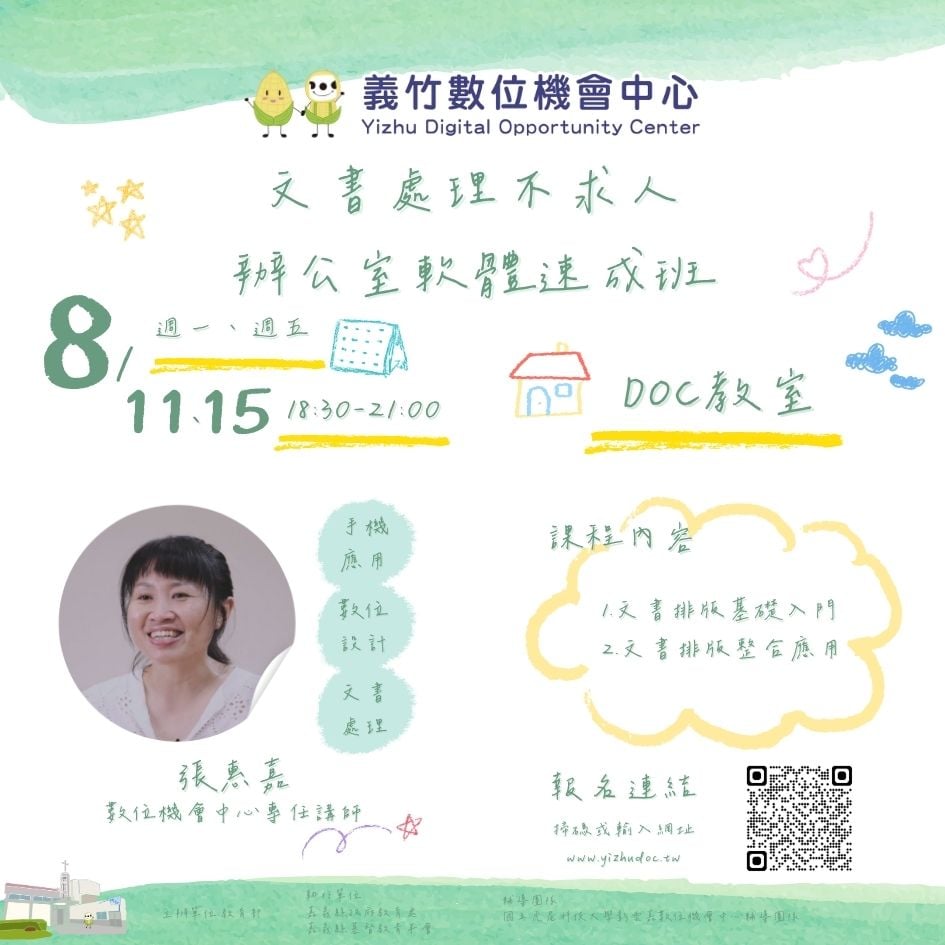 義竹數位機會中心
Yizhu Digital Opportunity Center
文書處理不求人
辦公室軟體速成班
8/
週一、週五
11、15
18:30-21:00
DOC教室
手機
應用
數位
設計
文書
處理
課程內容
1.文書排版基礎入門
2.文書排版整合應用
張惠嘉
數位機會中心專任講師
報名連結
掃碼或輸入網址
www.yizhudoc.tw
主辦單位教育部
執行單位
嘉義縣政府教育處
嘉義縣基督教青年會
輔導團隊
國立虎尾科技大學彰雲嘉數位機會中心輔導團隊